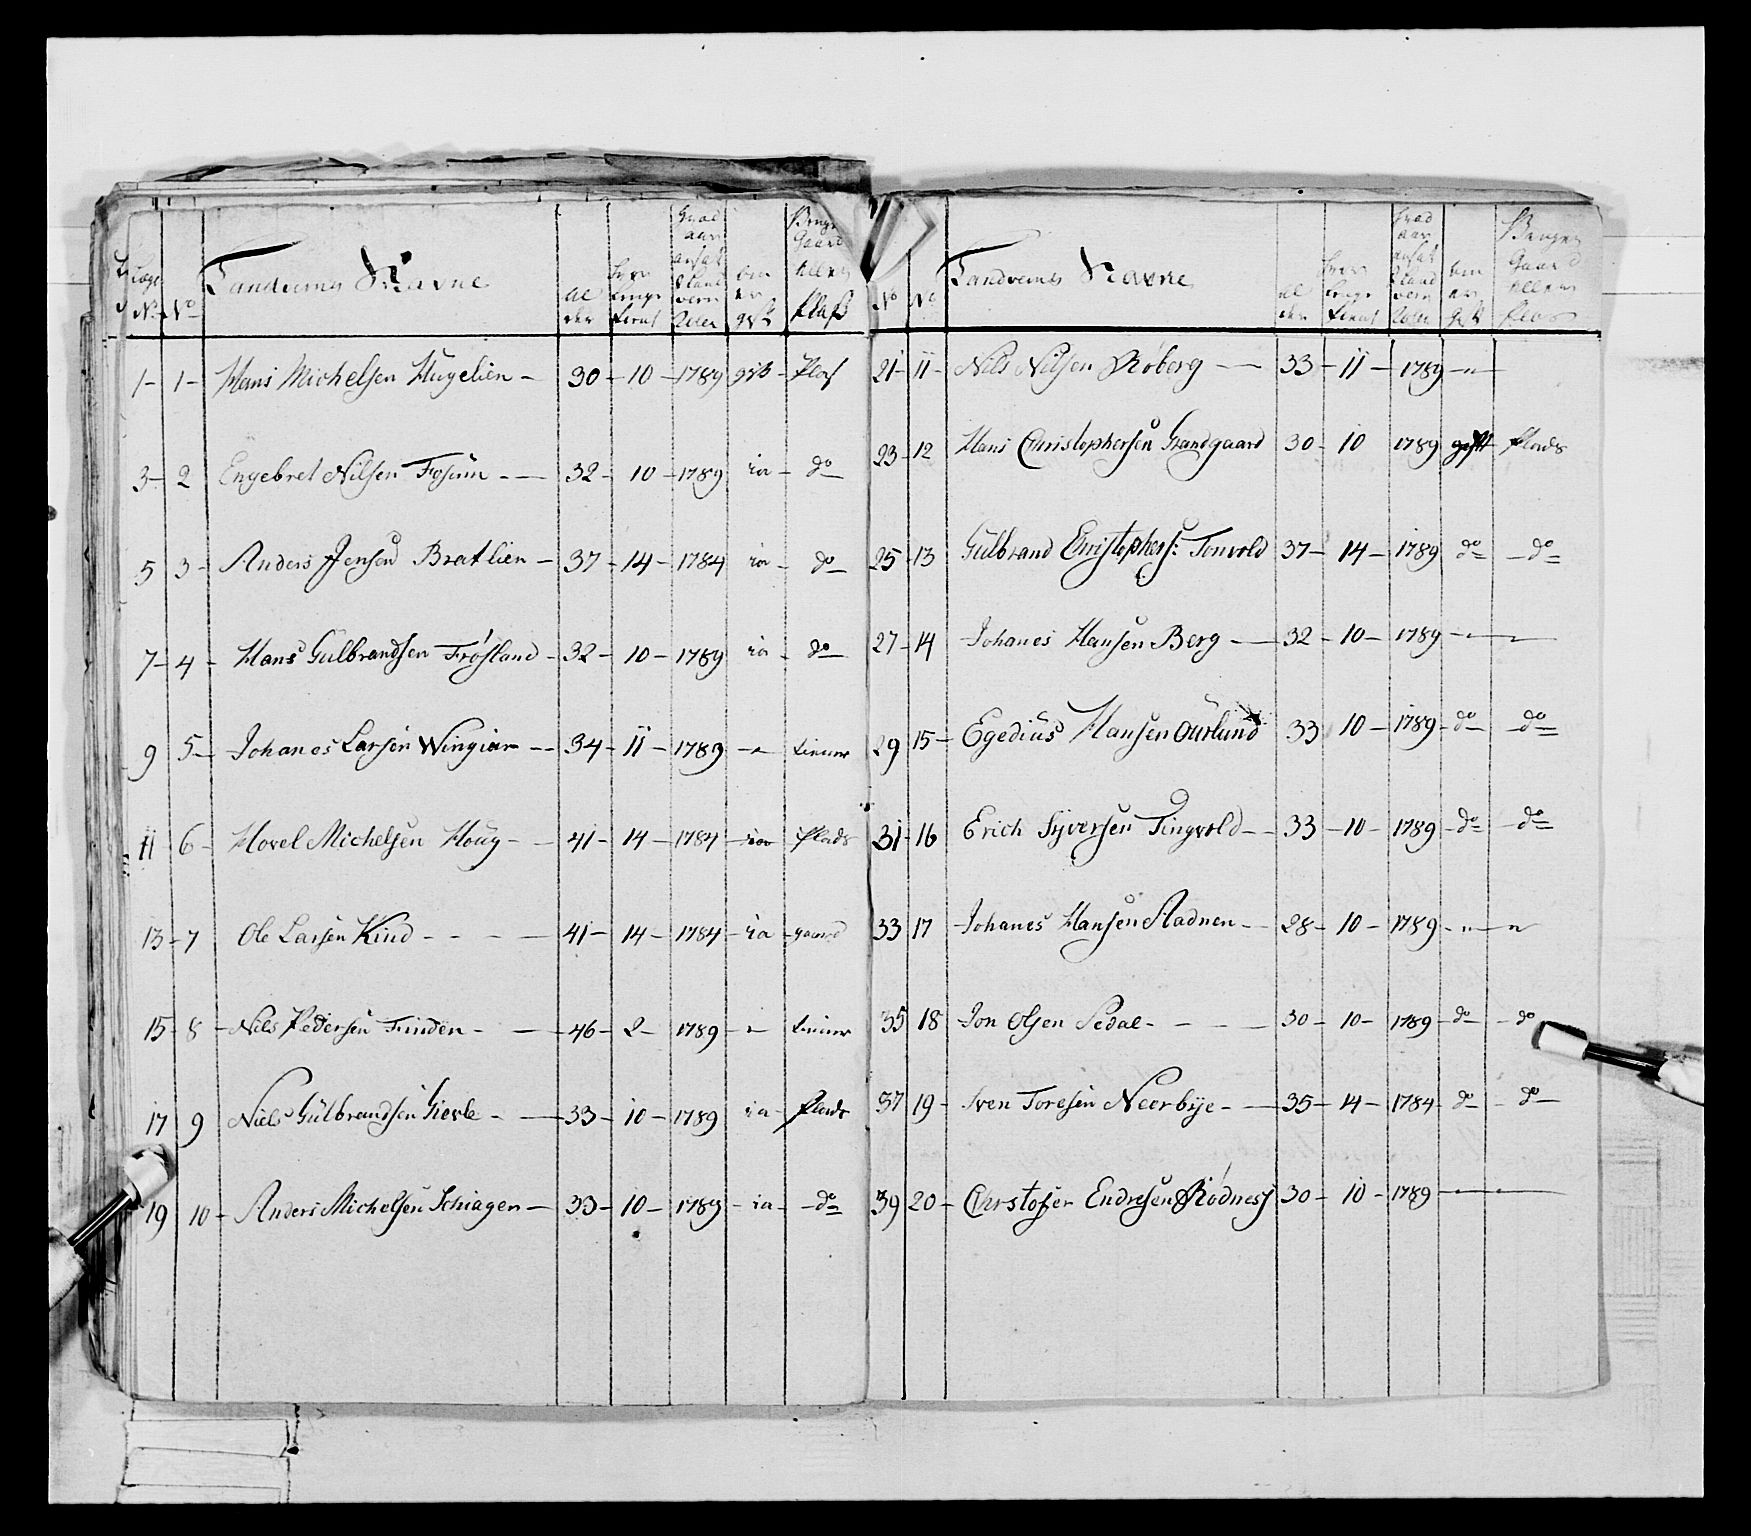 No No Landverns Navne Al der hvor lenge tient Hvad aar ansat i Land vern Roller om er gift Bruger Gaard eller Plass
1 – 1 – Hans Michelsen Hugelien – 30 – 10 – 1789 gift – Plass
3 – 2 Engebret Nilsen Fosum – 32 – 10 – 1789 ia – do
5 3 – Anders Jensen Bratlien – 37 – 14 – 1784 ia – do
7 – 4 – Hans Gulbrandsen Frøsland – 32 – 10 – 1789 ia – do
9 5 – Johanes Larsen Wingiar – 34 – 11 – 1789 – "
11 6 – Hovel Michelsen Houg – 41 – 14 – 1784 – ia Plads
13 – 7 Ole Larsen Kind – 41 – 14 – 1784 – ia – gaard
15 – 8 – Nils Pedersen Finden – 46 – 2 – 1789 –
17 9 Niels Gulbrandsen Gierle – 33 – 10 – 1789 ia – Plads
19 10 – Anders Michelsen Schiagen – 33 – 10 – 1789 – ia – do
No No Landverns Navne Al der hvor lenge tient Hvad aar ansat i Land vern Roller om er gift Bruger Gaard eller Plas
21 – 11 – Nils Nilsen Røberg – 33 – 11 – 1789 – " –
23 – 12 Hans Christophersen Grandgaard 30 – 10 1789 gift Plads
25 – 13 Gulbrand Cristophers: Tonvold 37 – 14 – 1789 do – do
27 – 14 Johanes Hansen Berg – 32 – 10 – 1789 – " – "
29 15 – Egedius Hansen Ourlund 33 10 – 1789 – do – do
31 – 16 Erich Syversen Tingvold – 33 – 10 – 1789 – do – do
33 17 – Johanes Hansen Stadnen – 28 – 10 – 1789 – " – "
35 18 – Jon Olsen Sedal – 30 – 10 – 1789 – do – do
37 19 – Sven Toresen Neerbye – 35 – 14 – 1784 – do – do
39 20 – Chrstofer Endresen Rødness 30 – 10 – 1789 –